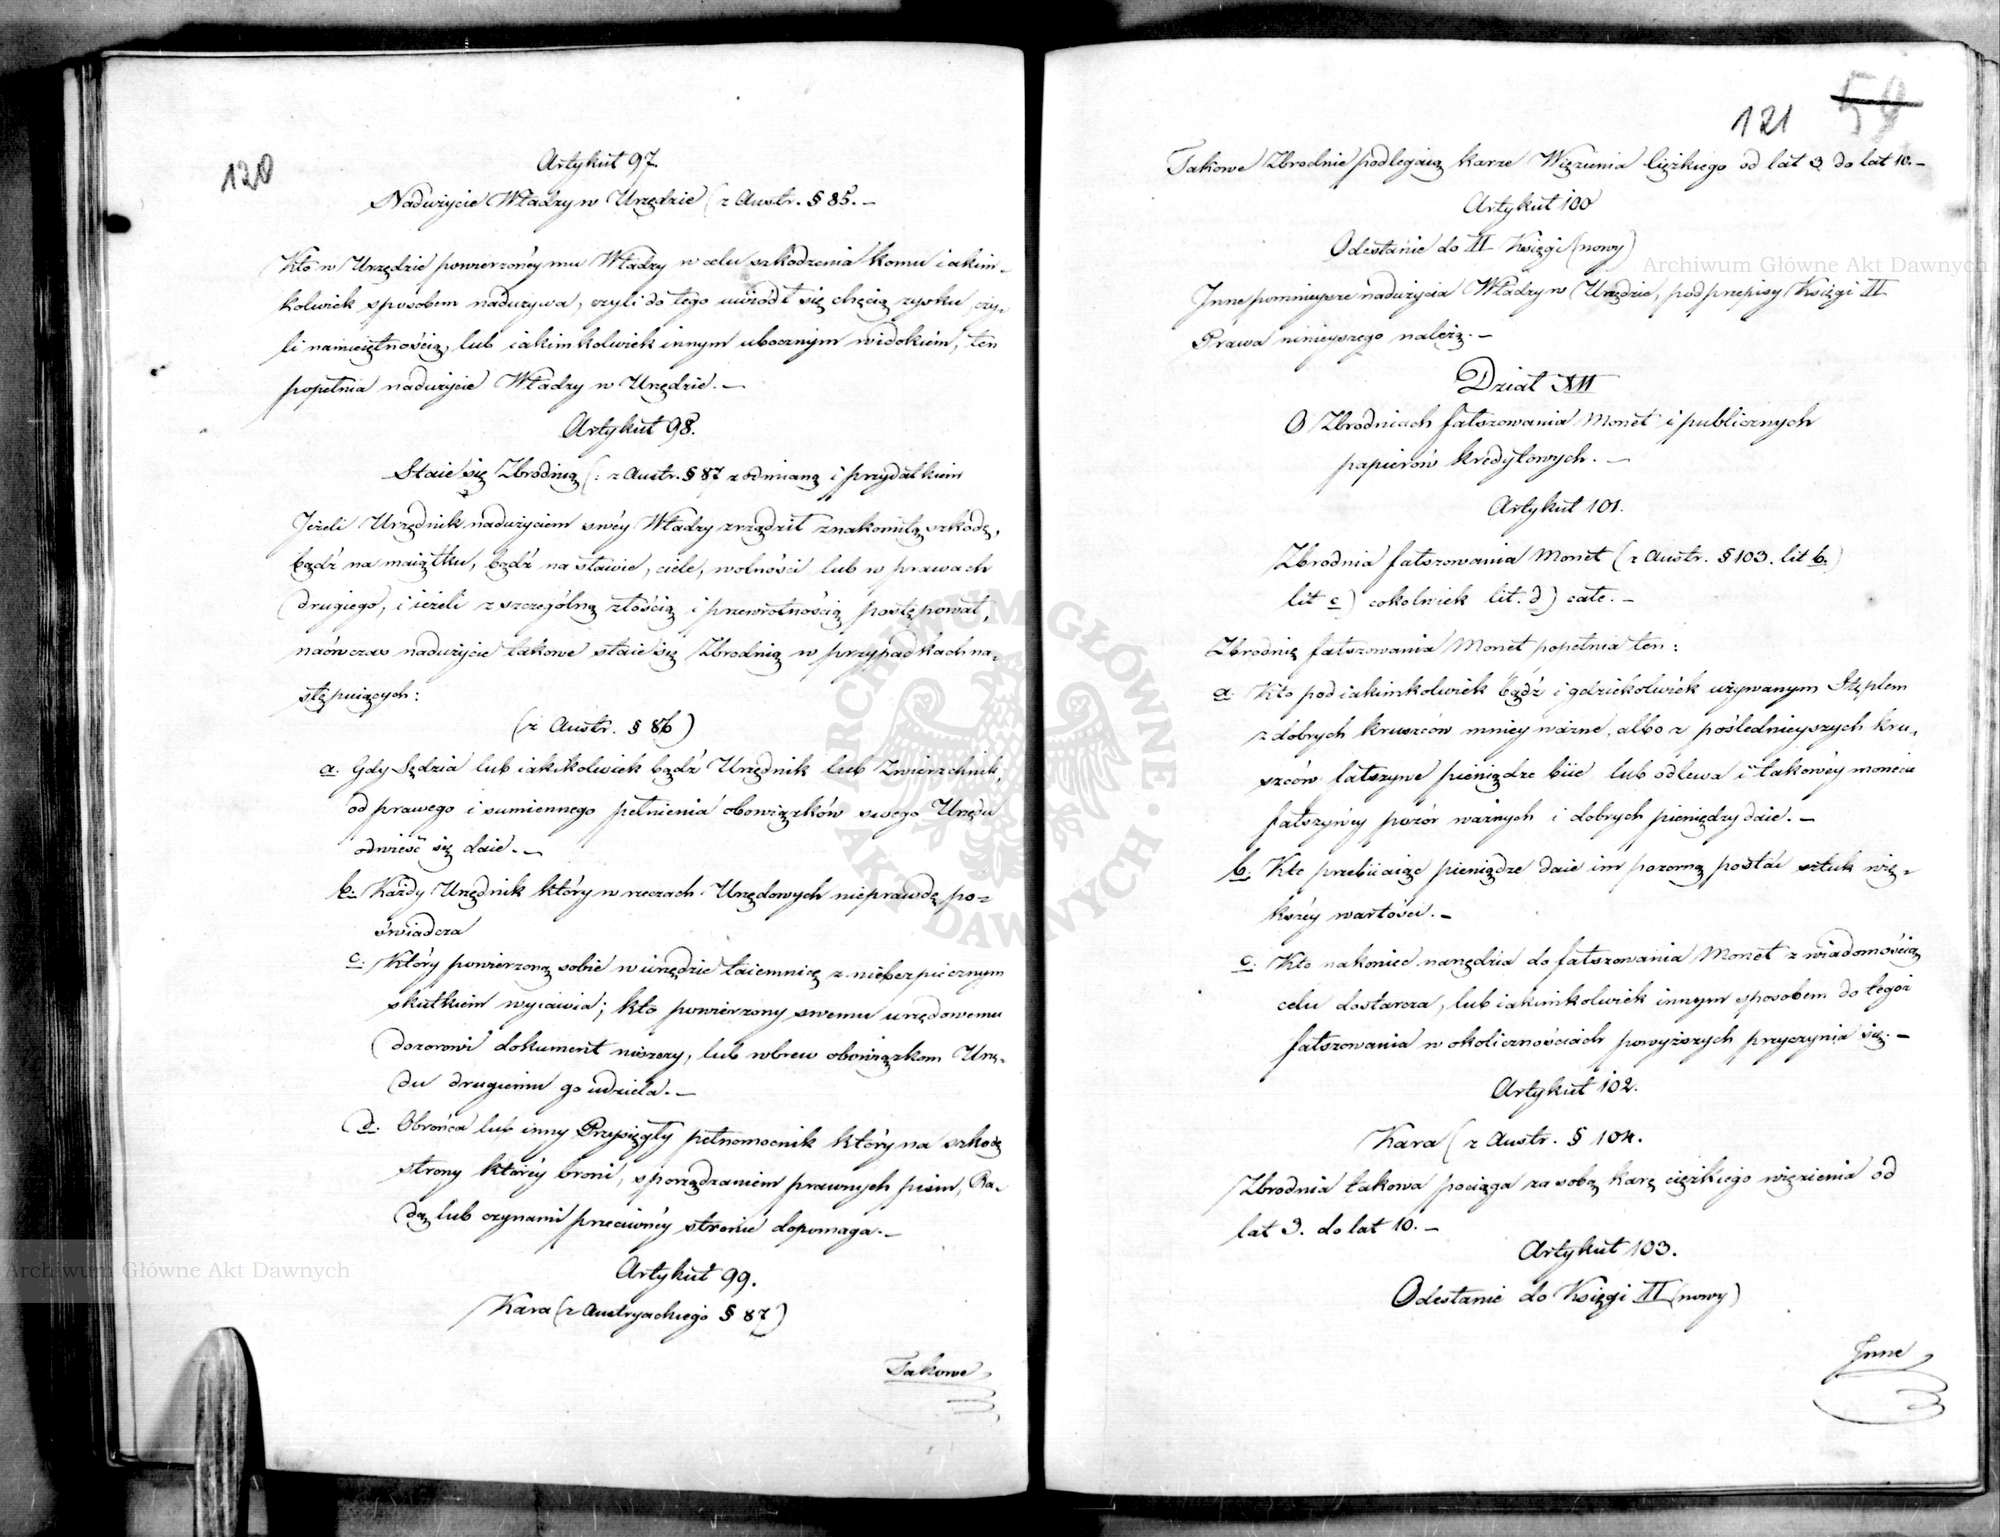 120
Artykuł 97.
Nadużycie Władzy w Urzędzie (z Austr. § 85. —
Kto w Urzędzie powierzonéy mu Władzy w celu szkodzenia komu iakim-
kolwiek sposobem nadużywa, czyli do tego uwiodł się chęcią zysku czy-
li namiętnością, lub iakimkolwiek innym ubocznym widokiem, ten
popełnia nadużycie Władzy w Urzędzie. —
Artykuł 98.
Staie się Zbrodnią (: z Austr. § 87 z odmianą i przydatkiem
Jeżeli Urzędnik nadużyciem swéy Władzy zrządził znakomitą szkodę,
bądź na maiątku, bądź na sławie, ciele, wolności lub w prawach
drugiego, i ieżeli z szczególną złością i przewrotnością postępował,
naówczas nadużycie takowe staie się Zbrodnią w przypadkach na-
stępuiących:
(z Austr. § 86)
a. Gdy Sędzia lub iakikolwiek bądź Urzędnik lub Zwierzchnik,
od prawego i sumiennego pełnienia obowiązków swego Urzędu
odwieść się daie. —
b. Każdy Urzędnik który w rzeczach Urzędowych nieprawdę po-
świadcza
c. Który powierzoną sobie w urzędzie taiemnicę z niebezpiecznym
skutkiem wyiawia; kto powierzony swemu urzędowemu
dozorowi dokument niszczy, lub wbrew obowiązkom Urzę-
du drugiemu go udziela. —
d. Obrońca lub inny Przysięgły pełnomocnik który na szkodę
strony któréy broni, sporządzaniem prawnych pism, Ra-
dą lub czynami przeciwnéy stronie dopomaga. —
Artykuł 99.
Kara (z Austryackiego § 87)
Takowe
121 59
Takowe Zbrodnie podlegaią karze Więzienia ciężkiego od lat 3 do lat 10. —
Artykuł 100
Odesłanie do II Księgi (nowy)
Inne pomnieysze nadużycia Władzy w Urzędzie, pod przepisy Księgi II
Prawa ninieyszego należą. —
Dział XII
O Zbrodniach fałszowania Monet i publicznych
papierów kredytowych. —
Artykuł 101.
Zbrodnia fałszowania Monet (z Austr. § 103. lit b.)
lit c) cokolwiek lit. d) całe. —
Zbrodnię fałszowania Monet popełnia ten:
a. Kto pod iakimkolwiek bądź i gdziekolwiek używanym Stęplem
z dobrych kruszców mniey ważne, albo z pośledniejszych kru-
szców fałszywe pieniądze biie lub odlewa i takowéy monecie
fałszywéy pozór ważnych i dobrych pieniędzy daie. —
b. Kto przebiiaiąc pieniądze daie im pozorną postać sztuk więk-
kszéy wartości. —
c. Kto nakoniec narzędzia do fałszowania Monet z wiadomością
celu dostarcza, lub iakimkolwiek innym sposobem do tegoż
fałszowania w okolicznościach powyższych przyczynia się. —
Artykuł 102.
Kara (z Austr. § 104.
Zbrodnia takowa pociąga za sobą karę ciężkiego więzienia od
lat 3. do lat 10. —
Artykuł 103.
Odesłanie do Księgi II (nowy)
Inne
Archiwum Główne Akt Dawnych
Archiwum Główne Akt Dawnych
ARCHIWUM GŁÓWNE AKT DAWNYCH